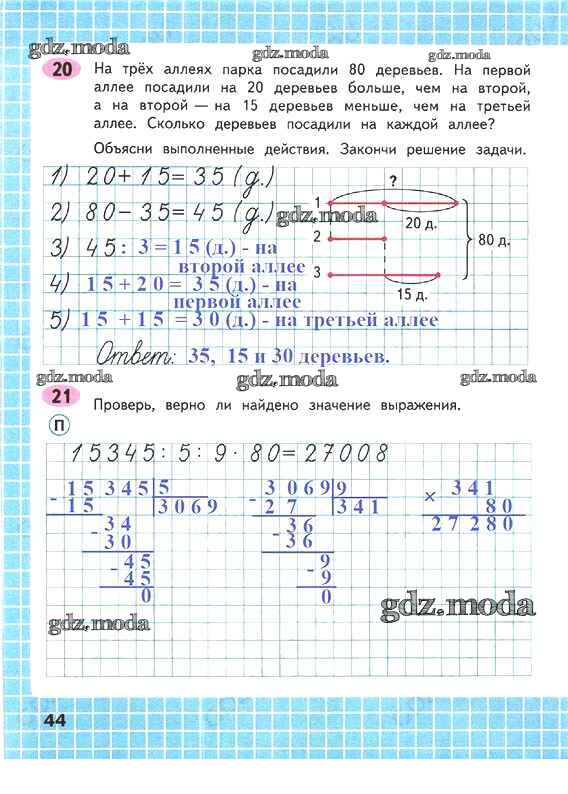 gdz.moda
gdz.moda
gdz.moda
20 На трёх аллеях парка посадили 80 деревьев. На первой
аллее посадили на 20 деревьев больше, чем на второй,
а на второй — на 15 деревьев меньше, чем на третьей
аллее. Сколько деревьев посадили на каждой аллее?
Объясни выполненные действия. Закончи решение задачи.
1) 20+15=35 (д.)
2) 80-35=45 (д.)
3) 45: 3=15 (д.) - на
второй аллее
4) 15+20= 35 (д.) - на
первой аллее
5) 15 +15 =30 (д.) - на третьей аллее
Ответ: 35, 15 и 30 деревьев.
?
1
20 д.
gdz.moda
2
80 д.
3
15 д.
gdz.moda
gdz.moda
gdz.moda
21 Проверь, верно ли найдено значение выражения.
П
15345:5:9·80=27008
- 15 345 5
15 3069
- 34
30
- 45
45
0
- 3069 9
27 341
- 36
36
- 9
9
0
× 341
80
27280
gdz.moda
gdz.moda
44